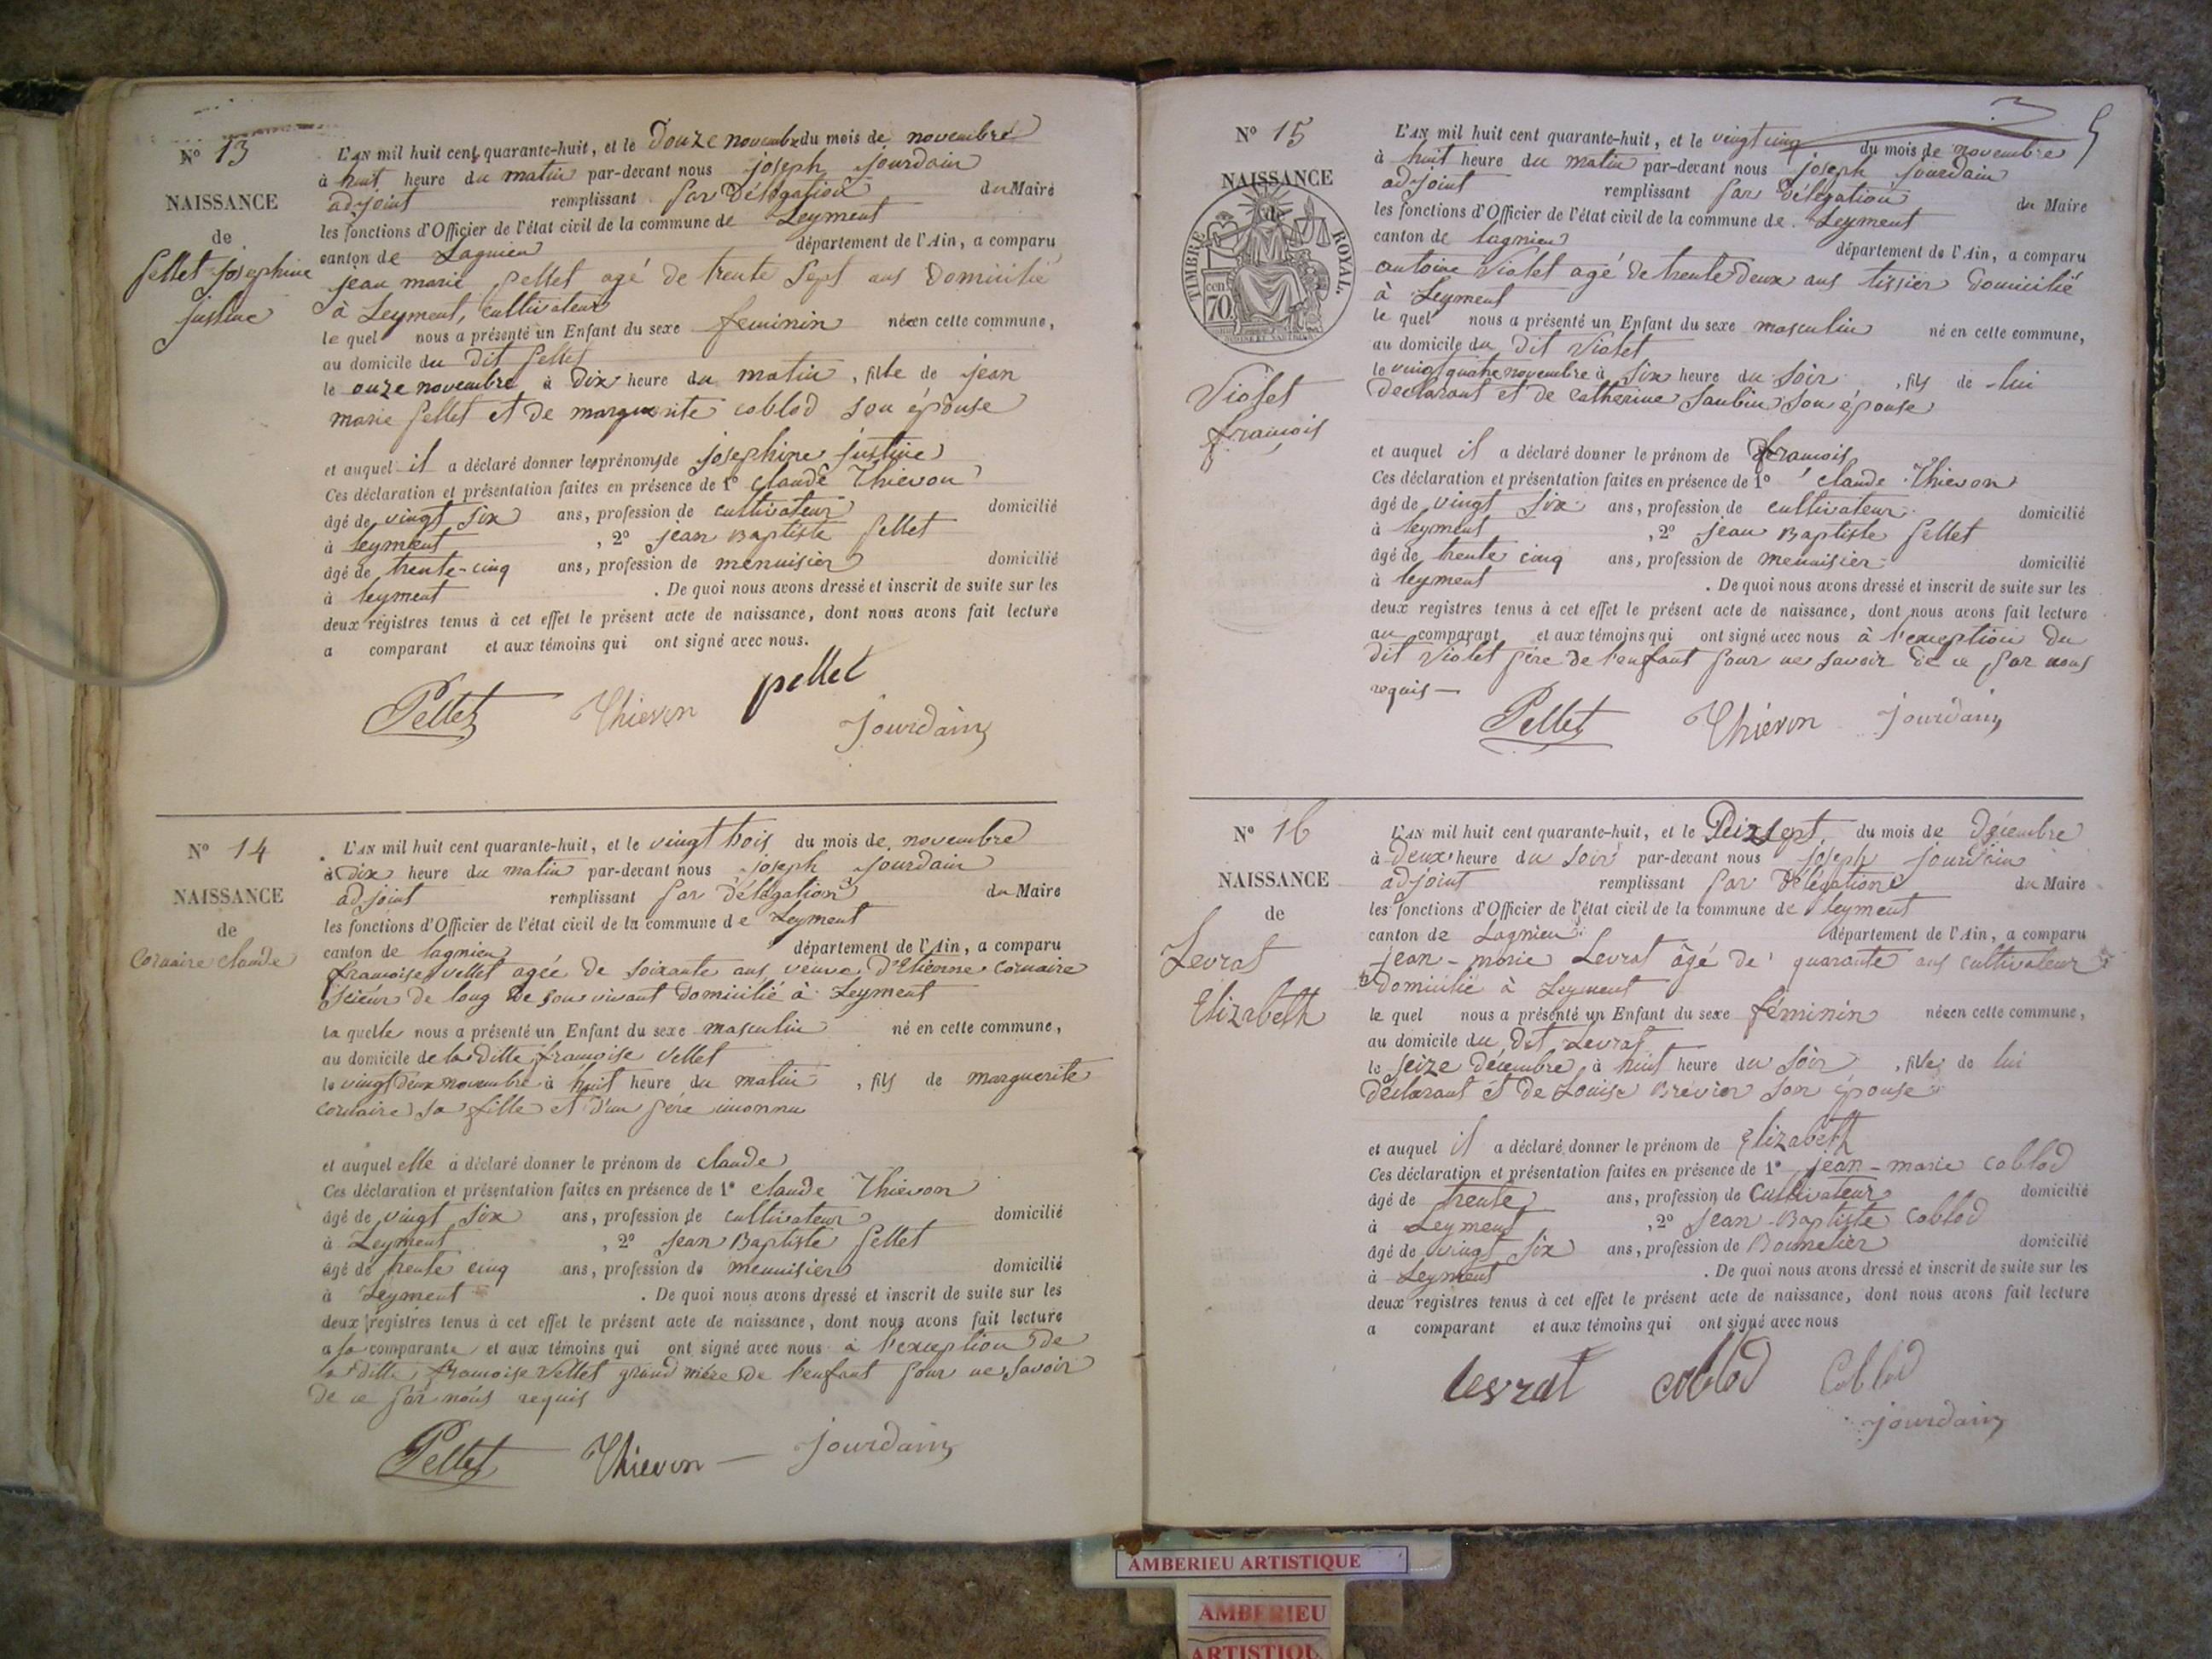 N° 13
NAISSANCE
de
Pellet Josephine
justine
L'AN mil huit cent quarante-huit, et le Douze novembre du mois de novembre
à huit heure du matin par-devant nous joseph jourdain
adjoint remplissant par Délégation du Maire
les fonctions d'Officier de l'état civil de la commune de Leyment
canton de Lagnieu département de l'Ain, a comparu
jean marie pellet agé de trente sept ans Domicilié
à Leyment, cultivateur
le quel nous a présenté un Enfant du sexe feminin née en cette commune,
au domicile du dit pellet
le onze novembre à Dix heure du matin, fille de jean
marie pellet et de marguerite coblod son épouse
et auquel il a déclaré donner les prénoms de josephine justine
Ces déclaration et présentation faites en présence de 1° claude Thievon
âgé de vingt six ans, profession de cultivateur domicilié
à leyment, 2° jean Baptiste pellet
âgé de trente-cinq ans, profession de menuisier domicilié
à leyment. De quoi nous avons dressé et inscrit de suite sur les
deux registres tenus à cet effet le présent acte de naissance, dont nous avons fait lecture
a comparant et aux témoins qui ont signé avec nous.
Pellet Thievon pellet
jourdain
N° 14
NAISSANCE
de
Cornaire claude
L'AN mil huit cent quarante-huit, et le vingt trois du mois de novembre
à dix heure du matin par-devant nous joseph jourdain
adjoint remplissant par Délégation du Maire
les fonctions d'Officier de l'état civil de la commune de Leyment
canton de lagnieu département de l'Ain, a comparu
francoise vellet agée de soixante ans veuve D'Etienne cornaire
scieur de long De son vivant Domicilié à Leyment
la quelle nous a présenté un Enfant du sexe masculin né en cette commune,
au domicile de la Ditte francoise vellet
le vingt Deux novembre à huit heure du matin, fils de marguerite
cornaire sa fille et D'un père inconnu
et auquel elle a déclaré donner le prénom de claude
Ces déclaration et présentation faites en présence de 1° claude Thievon
âgé de vingt six ans, profession de cultivateur domicilié
à Leyment, 2° jean Baptiste pellet
âgé de trente cinq ans, profession de menuisier domicilié
à Leyment. De quoi nous avons dressé et inscrit de suite sur les
deux registres tenus à cet effet le présent acte de naissance, dont nous avons fait lecture
a la comparante et aux témoins qui ont signé avec nous à l'exception De
la ditte francoise vellet grand mère De l'enfant pour ne savoir
De ce par nous requis
Pellet Thievon jourdain
5
N° 15
NAISSANCE
de
TIMBRE ROYAL.
70 cent
Violet
francois
L'AN mil huit cent quarante-huit, et le vingt cinq du mois de novembre
à huit heure du matin par-devant nous joseph jourdain
adjoint remplissant par Délégation du Maire
les fonctions d'Officier de l'état civil de la commune de Leyment
canton de lagnieu département de l'Ain, a comparu
antoine violet agé de trente Deux ans tissier Domicilié
à Leyment
le quel nous a présenté un Enfant du sexe masculin né en cette commune,
au domicile du Dit violet
le vingt quatre novembre à six heure du soir, fils de lui
declarant et de catherine Saubin son épouse
et auquel il a déclaré donner le prénom de francois
Ces déclaration et présentation faites en présence de 1° claude Thievon
âgé de vingt six ans, profession de cultivateur domicilié
à leyment, 2° jean Baptiste pellet
âgé de trente cinq ans, profession de menuisier domicilié
à leyment. De quoi nous avons dressé et inscrit de suite sur les
deux registres tenus à cet effet le présent acte de naissance, dont nous avons fait lecture
au comparant et aux témoins qui ont signé avec nous à l'exception Du
dit violet père De l'enfant pour ne savoir De ce par nous
requis
Pellet Thievon jourdain
N° 16
NAISSANCE
de
Levrat
Elizabeth
L'AN mil huit cent quarante-huit, et le Dix sept du mois de Décembre
à Deux heure du soir par-devant nous joseph jourdain
adjoint remplissant par Délégation du Maire
les fonctions d'Officier de l'état civil de la commune de leyment
canton de Lagnieu département de l'Ain, a comparu
jean-marie Levrat âgé de quarante ans cultivateur
domicilié à Leyment
le quel nous a présenté un Enfant du sexe féminin née en cette commune,
au domicile du Dit Levrat
le seize décembre à huit heure du soir, fille de lui
déclarant et De Louise Brevier son épouse
et auquel il a déclaré donner le prénom de Elizabeth
Ces déclaration et présentation faites en présence de 1° jean-marie coblod
âgé de trente ans, profession de cultivateur domicilié
à Leyment, 2° jean-Baptiste coblod
âgé de vingt six ans, profession de Bourrelier domicilié
à Leyment. De quoi nous avons dressé et inscrit de suite sur les
deux registres tenus à cet effet le présent acte de naissance, dont nous avons fait lecture
a comparant et aux témoins qui ont signé avec nous
levrat coblod Coblod
jourdain
AMBERIEU ARTISTIQUE
AMBERIEU
ARTISTIQU